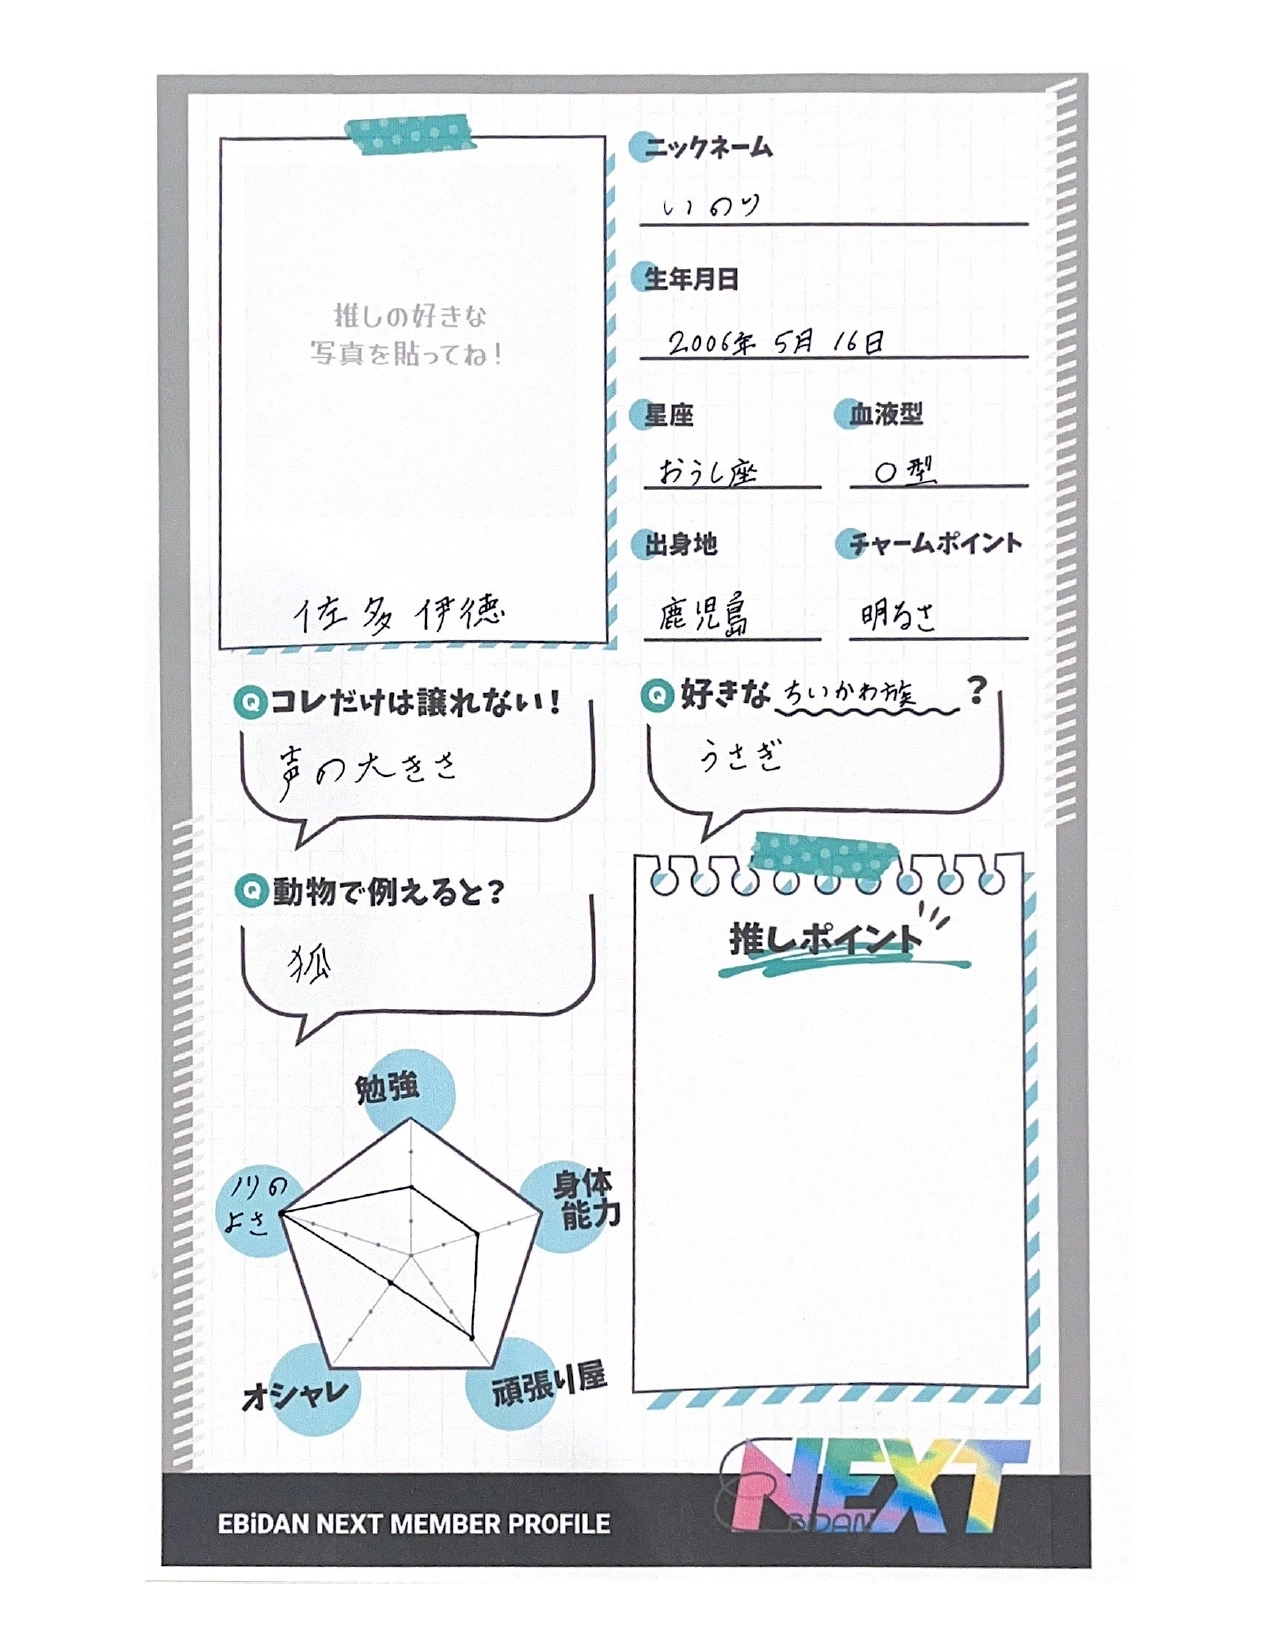 推しの好きな
写真を貼ってね!
佐多伊徳
ニックネーム
いのり
生年月日
2006年 5月 16日
星座
おうし座
血液型
O型
出身地
鹿児島
チャームポイント
明るさ
Q コレだけは譲れない!
声の大きさ
Q 好きな ちいかわ族 ?
うさぎ
Q 動物で例えると?
狐
推しポイント
勉強
身体
能力
頑張り屋
オシャレ
ノリの
よさ
EBiDAN NEXT MEMBER PROFILE
EBiDAN NEXT